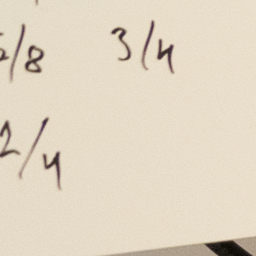 /8 3/4
2/4